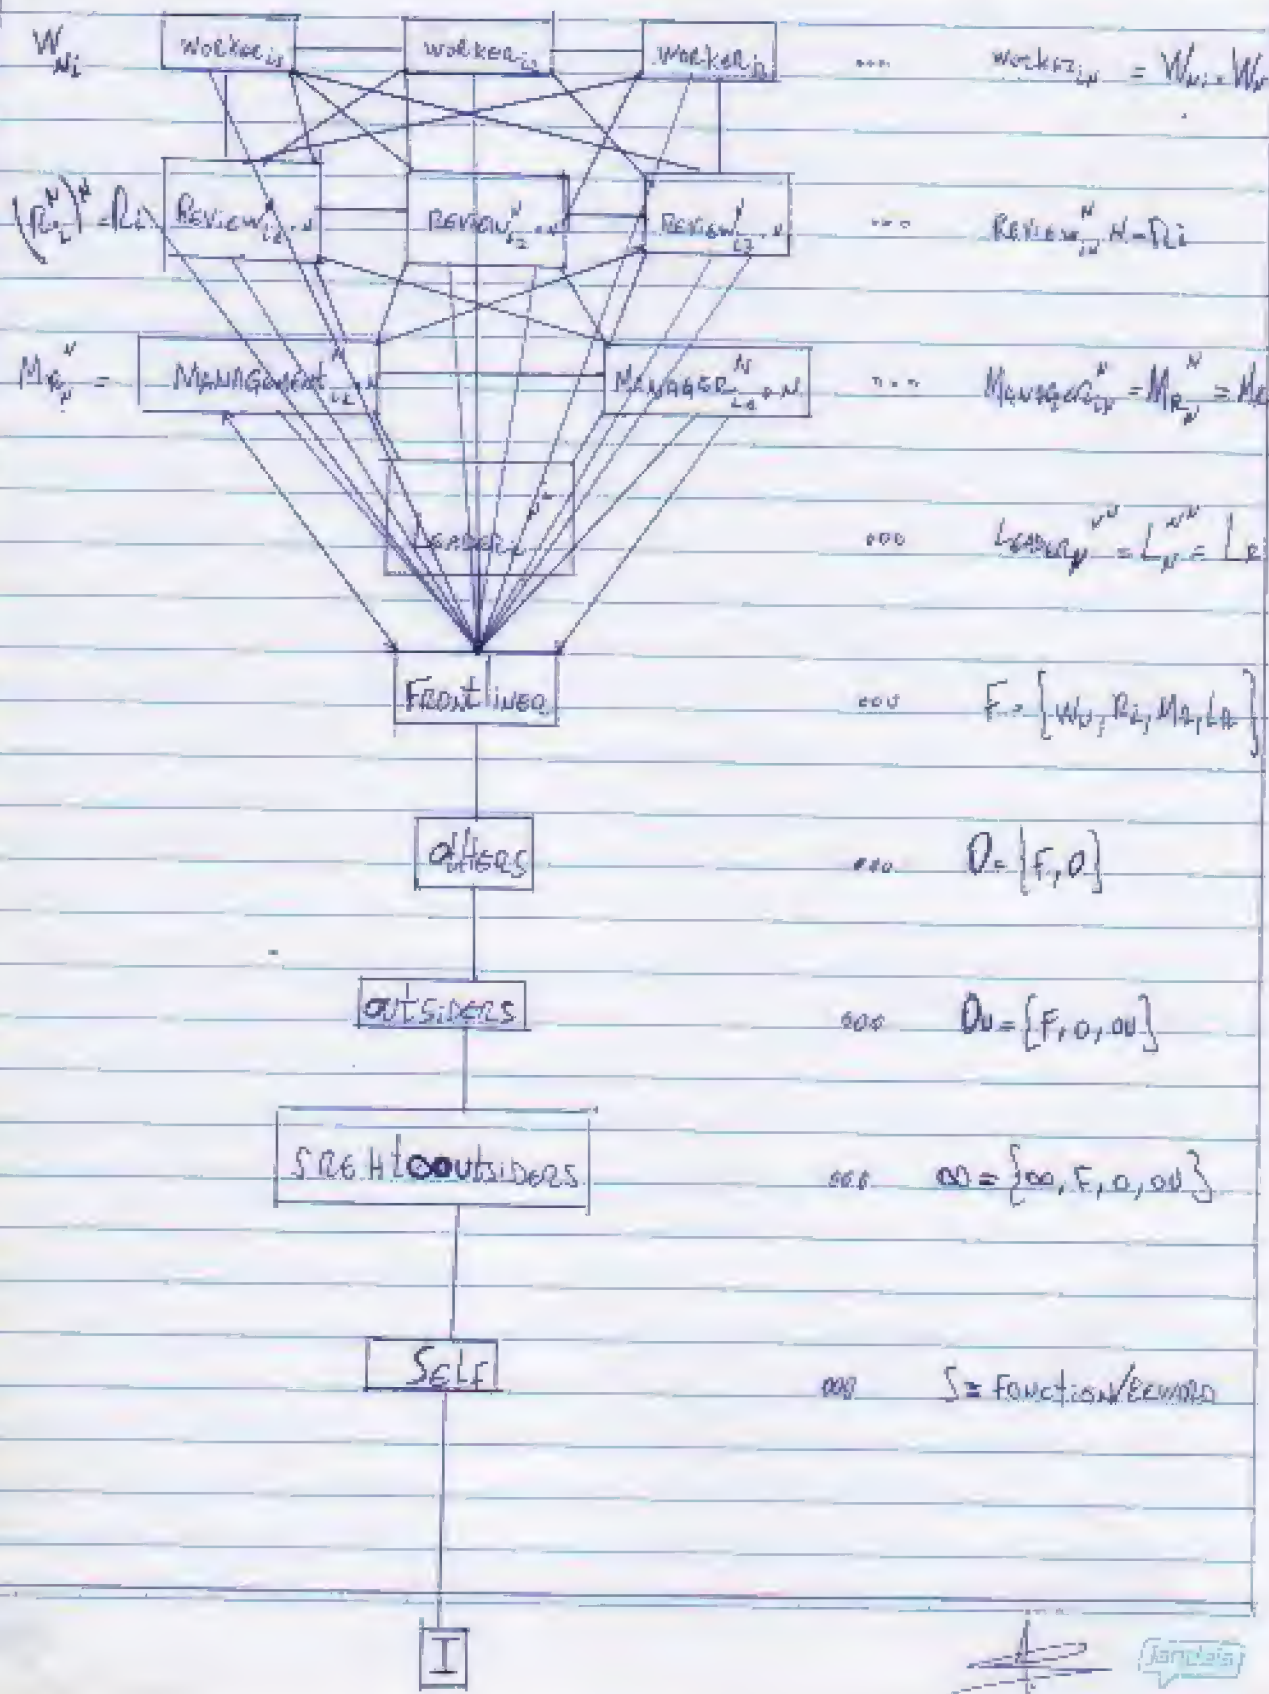 W_Ni worker_i1 worker_i2 worker_i3 ... worker_iN = W_Ni = W_N
(R_i^N)^N = Ri Review_i1^N.N Review_i2^N.N Review_i3^N.N ... Review_iN^N.N = Ri
M_R_N^N = Management_i1^N.N Manager_i2^N.N ... Manager_iN^N = M_R_N^N = M_R
Leader_i ... Leader_N^NN = L_N^NN = L_R
Frontlineo ... F = {W_N, Ri, M_R, L_R}
others ... O = {F, O}
outsiders ... Ou = {F, O, OU}
∞outsiders ... ∞ = {∞, F, O, OU}
Self ... S = Function/Reword
I
Jandaia